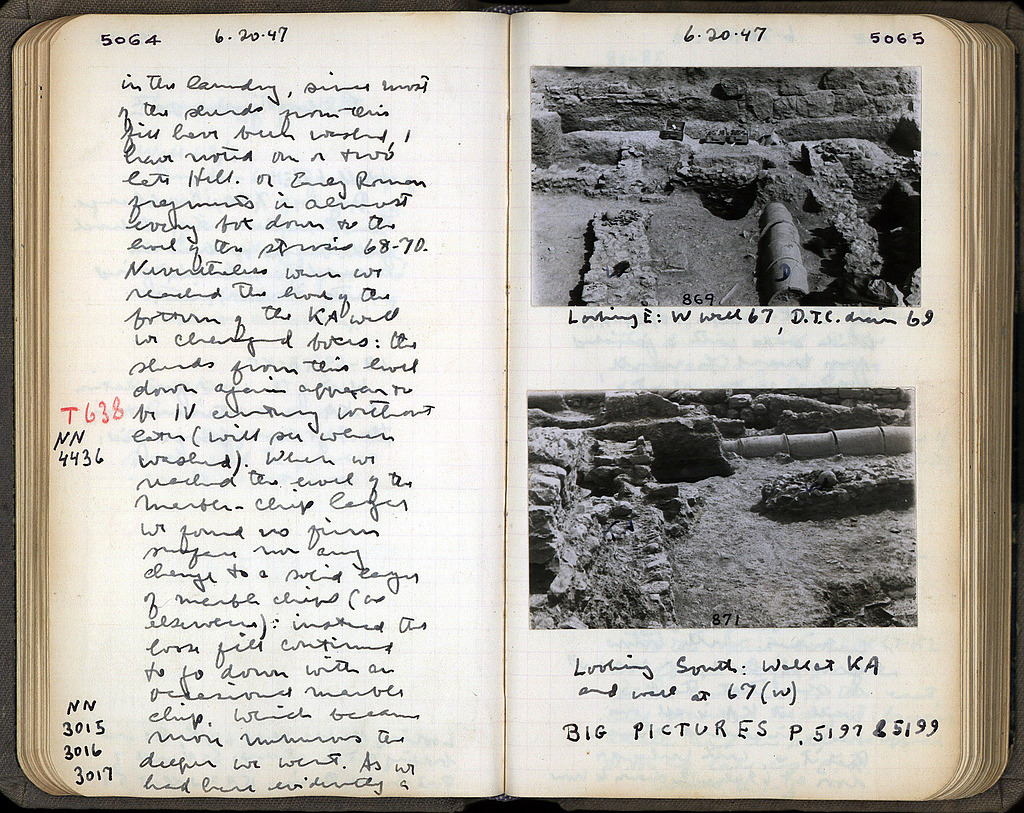 5064 6-20-47
in the laundry, since most
of the sherds from this
fill have been washed, I
have noted one or two
late Hell. or Early Roman
fragments in almost
every box down to the
level of the stosis 68-70.
Nevertheless when we
reached the level of the
bottom of the KA wall
we changed boxes: the
sherds from this level
down again appear to
T638
be IV century without
NN
4436
later (will see when
washed). When we
reached the level of the
marble-chip layer
we found no firm
surface nor any
change to a solid layer
of marble chips (as
elsewhere): instead the
loose fill continued
to go down with an
occasional marble
NN
3015
3016
3017
chip, which became
more numerous the
deeper we went. As we
had here evidently a
6-20-47 5065
869
Looking E: W wall 67, D.T.C. drain 69
871
Looking South: Wall at KA
and wall at 67 (w)
BIG PICTURES P. 5197 & 5199